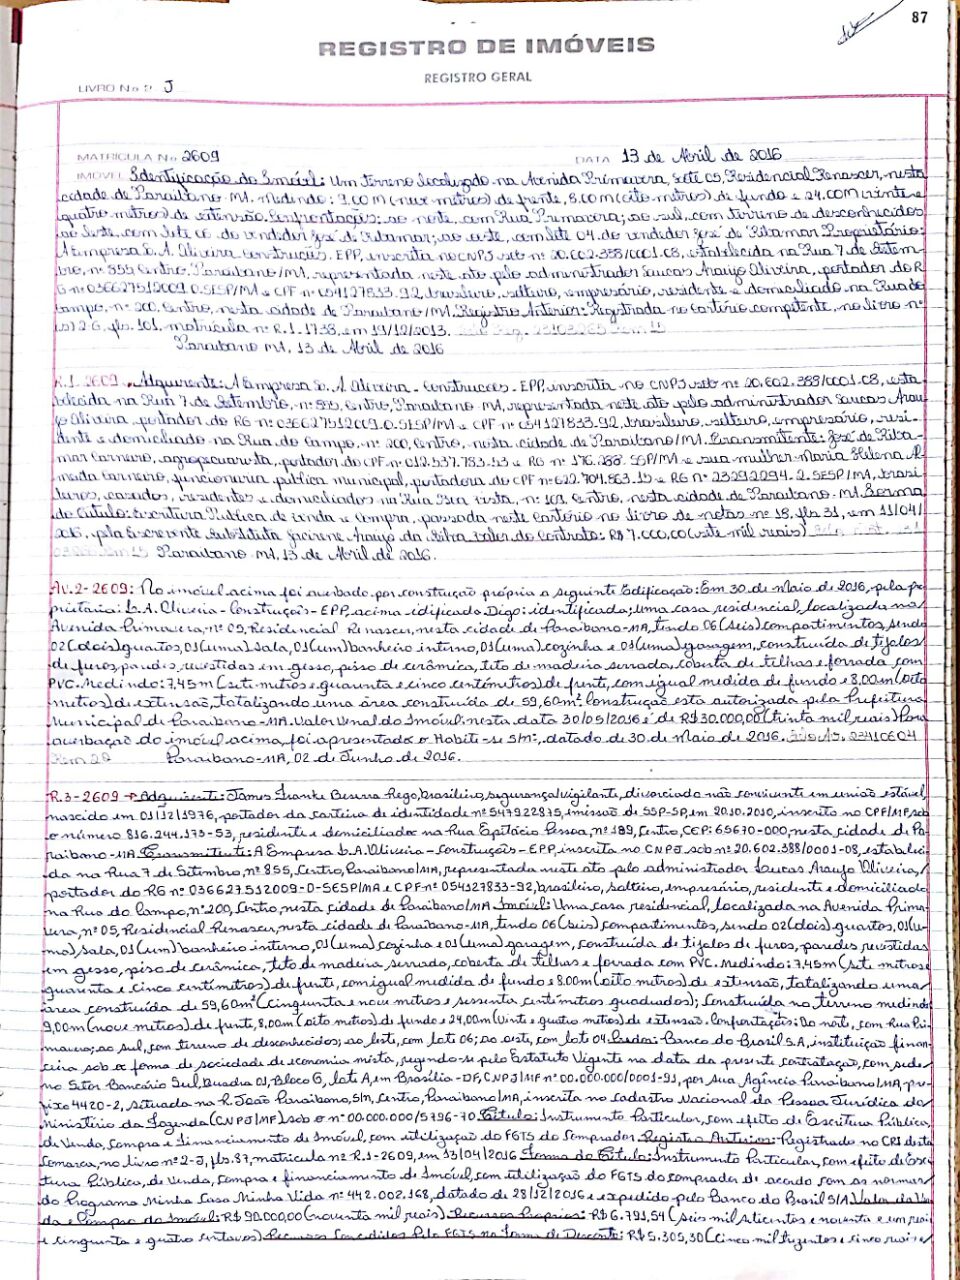 87
REGISTRO DE IMÓVEIS
REGISTRO GERAL
LIVRO Nº 2 J
MATRÍCULA Nº 2609 DATA 13 de Abril de 2016
IMÓVEL Identificação do Imóvel: Um terreno localizado na Avenida Primavera, Lote 05, Residencial Renascer, nesta
cidade de Paraibano MA. Medindo: 9,00M (nove metros) de frente, 8,00M (oito metros) de fundo e 24,00M (vinte e
quatro metros) de extensão. Confrontações: ao norte, com Rua Primavera; ao sul, com terreno de desconhecidos
ao leste, com lote 06 do vendedor José de Ribamar; ao oeste, com lote 04 do vendedor José de Ribamar Proprietário:
A Empresa L. A. Oliveira construções, EPP, inscrita no CNPJ sob nº 20.602.388/0001.08, estabelecida na Rua 7 de Setem-
bro, nº 855 Centro, Paraibano/MA, representada neste ato pelo administrador Lucas Araujo Oliveira, portador do R
G nº 036627512009.0.SESP/MA e CPF nº 054127833.92, brasileiro, solteiro, empresário, residente e domiciliado na Rua do
Campo, nº 200, Centro, nesta cidade de Paraibano/MA. Registro Anterior: Registrada no cartório competente, no livro nº
2-G, fls. 101, matrícula nº R.1-1738, em 19/12/2013.
Paraibano MA, 13 de Abril de 2016
R.1-2609 - Adquirente: A Empresa L. A Oliveira - Construções - EPP, inscrita no CNPJ sob nº 20.602.388/0001.08, esta
belecida na Rua 7 de Setembro, nº 855, Centro, Paraibano MA, representada neste ato pelo administrador Lucas Arau
jo Oliveira, portador do RG nº 036627512009.0.SESP/MA e CPF nº 054127833.92, brasileiro, solteiro, empresário, resi-
dente e domiciliado na Rua do Campo, nº 200, Centro, nesta cidade de Paraibano/MA. Transmitente: José de Riba-
mar Carneiro, agropecuarista, portador do CPF nº 012.537.783.53 e RG nº 176.288 SSP/MA e sua mulher Maria Helena Al
meida Carneiro, funcionaria publica municipal, portadora do CPF nº 622.704.863.15 e RG nº 23292094-2.SESP/MA, brasi
leiros, casados, residentes e domiciliados na Rua Boa Vista, nº 101, Centro, nesta cidade de Paraibano-MA. Forma
do titulo: Escritura Publica de venda e compra, passada neste Cartório no livro de notas nº 18, fls 31, em 11/04/
2016, pela Escrevente Substituta Jocirene Araujo da Silva Valor do Contrato: R$ 7.000,00 (sete mil reais)
Paraibano MA, 13 de Abril de 2016.
Av.2-2609: No imóvel acima foi averbado por construção própria a seguinte Edificação: Em 30 de Maio de 2016, pela pro
prietária: L. A. Oliveira - Construções - EPP, acima edificado. Digo: identificada; uma casa residencial, localizada na
Avenida Primavera, nº 05, Residencial Renascer, nesta cidade de Paraibano-MA, tendo 06 (seis) compartimentos, sendo
02 (dois) quartos, 01 (uma) sala, 01 (um) banheiro interno, 01 (uma) cozinha e 01 (uma) garagem, construída de tijolos
de furos, paredes revestidas em gesso, piso de cerâmica, teto de madeira serrada, coberta de telhas e forrada com
PVC. Medindo: 7,45m (sete metros e quarenta e cinco centímetros) de frente, com igual medida de fundo e 8,00m (oito
metros) de extensão, totalizando uma área construída de 59,60m². Construção esta autorizada pela Prefeitura
Municipal de Paraibano-MA. Valor Venal do Imóvel: nesta data 30/05/2016 é de R$ 30.000,00 (trinta mil reais) Para
averbação do imóvel acima, foi apresentado o Habite-se S/Nº, datado de 30 de Maio de 2016.
Paraibano-MA, 02 de Junho de 2016.
R.3-2609 → Adquirente: James Franke Beserra Rego, brasileiro, segurança/vigilante, divorciado não convivente em união estável,
nascido em 01/12/1976, portador da carteira de identidade nº 547922875, emissão de SSP-SP, em 20.10.2010, inscrito no CPF/MF sob
o número 816.244.173-53, residente e domiciliado na Rua Epitácio Pessoa, nº 189, Centro, CEP: 65670-000, nesta cidade de Pa-
raibano-MA Transmitente: A Empresa L.A. Oliveira - Construções - EPP, inscrita no CNPJ sob nº 20.602.388/0001-08, estabeleci
da na Rua 7 de Setembro, nº 855, Centro, Paraibano/MA, representada neste ato pelo administrador Lucas Araujo Oliveira,
portador do RG nº 036627512009-0-SESP/MA e CPF-nº 054127833-92, brasileiro, solteiro, empresário, residente e domiciliado
na Rua do Campo, nº 200, Centro, nesta cidade de Paraibano/MA Imóvel: Uma casa residencial, localizada na Avenida Prima-
vera, nº 05, Residencial Renascer, nesta cidade de Paraibano-MA, tendo 06 (seis) compartimentos, sendo 02 (dois) quartos, 01 (u-
ma) sala, 01 (um) banheiro interno, 01 (uma) cozinha e 01 (uma) garagem, construída de tijolos de furos, paredes revestidas
em gesso, piso de cerâmica, teto de madeira serrada, coberta de telhas e forrada com PVC. Medindo: 7,45m (sete metros e
quarenta e cinco centímetros) de frente, com igual medida de fundo e 8.00m (oito metros) de extensão, totalizando uma
área construída de 59,60m² (cinquenta e nove metros e sessenta centímetros quadrados); Construída no terreno medindo
9,00m (nove metros) de frente, 8,00m (oito metros) de fundo e 24,00m (vinte e quatro metros) de extensão. Confrontações: Ao norte, com Rua Pri-
mavera; ao sul, com terreno de desconhecidos; ao leste, com lote 06; ao oeste, com lote 04 Credor: Banco do Brasil S.A, instituição finan-
ceira sob a forma de sociedade de economia mista, regendo-se pelo Estatuto Vigente na data da presente contratação, com sede
no Setor Bancário Sul, Quadra 01, Bloco G, lote A, em Brasília-DF, CNPJ/MF nº 00.000.000/0001-91, por sua Agência Paraibano/MA, pre-
fixo 4420-2, situada na R. João Paraibano, S/N, Centro, Paraibano/MA, inscrita no cadastro Nacional da Pessoa Jurídica do
Ministério da Fazenda (CNPJ/MF) sob o nº 00.000.000/5796-70 Título: Instrumento Particular, com efeito de Escritura Pública,
de Venda, Compra e Financiamento de Imóvel, com utilização do FGTS do Comprador Registro Anterior: Registrado no CRI desta
Comarca, no livro nº 2-J, fls. 87, matrícula nº R.1-2609, em 13/04/2016 Forma do Título: Instrumento Particular, com efeito de Escri
tura Pública, de Venda, Compra e financiamento de Imóvel, com utilização do FGTS do comprador de acordo com as normas
do Programa Minha Casa Minha Vida nº 442.002.168, datado de 28/12/2016 e expedido pelo Banco do Brasil S/A Valor da Ven
da e Compra do Imóvel: R$ 90.000,00 (noventa mil reais) Recursos Próprios: R$ 6.791,54 (seis mil setecentos e noventa e um reais
e cinquenta e quatro centavos) Recursos Concedidos Pelo FGTS na Forma de Desconto: R$ 5.305,30 (Cinco mil trezentos e cinco reais e